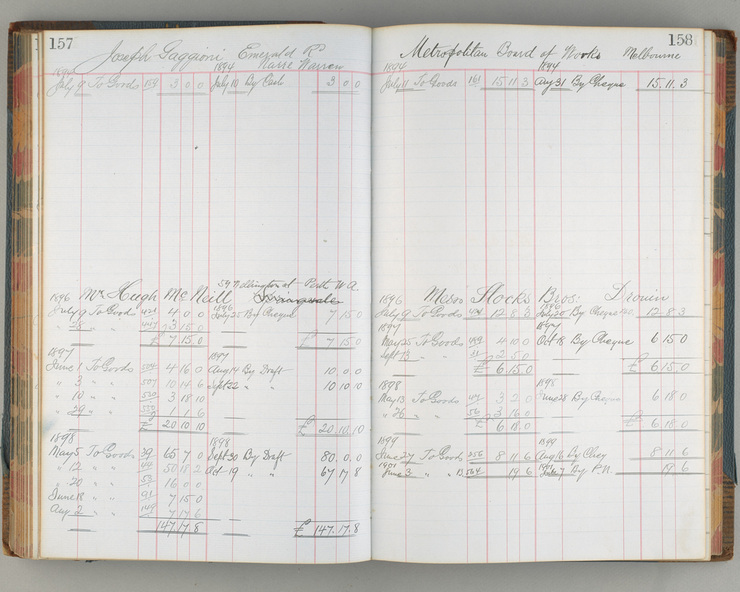 157
Joseph Gaggioni Emerald Rd
Narre Warren
1894 1894
July 9 To Goods 159 3 0 0 July 10 By Cash 3 0 0
59 Wellington St Perth W A
1896 Mr Hugh McNeill
1896
July 9 To Goods 424 4 0 0 July 25 By Cheque 7 15 0
" 28 " " 447 3 15 0
£ 7 15 0 £ 7 15 0
1897 1897
June 1 To Goods 4 16 0 Aug 14 By Draft 10 0 0
" 3 " " 507 10 14 6 Sept 22 " " 10 10 10
" 10 " " 520 3 18 10
" 29 " " 1 1 6
£ 20 10 10 £ 20 10 10
1898 1898
May 5 To Goods 39 65 7 0 Sept 30 By Draft 80 0 0
" 12 " " 44 50 18 2 Oct 19 " " 67 17 8
" 20 " " 53 16 0 0
June 18 " " 91 7 15 0
Aug 2 " " 149 7 17 6
147 17 8 £ 147 17 8
158
Metropolitan Board of Works Melbourne
1894 1894
July 11 To Goods 161 15 11 3 Aug 31 By Cheque 15 11 3
1896 Messrs Stocks Bros: Drouin
1896
July 9 To Goods 424 12 8 3 July 20 By Cheque 12 8 3
1897 1897
May 25 To Goods 499 4 10 0 Oct 18 By Cheque 6 15 0
Sept 13 " " 2 5 0
£ 6 15 0 £ 6 15 0
1898 1898
May 13 To Goods 47 3 2 0 June 28 By Cheque 6 18 0
" 26 " " 56 3 16 0
£ 6 18 0 £ 6 18 0
1899 1899
June 27 To Goods 256 8 11 6 Aug 16 By Cheq 8 11 6
1901 1901
June 3 " " B 564 19 6 July 7 By P.N. 19 6